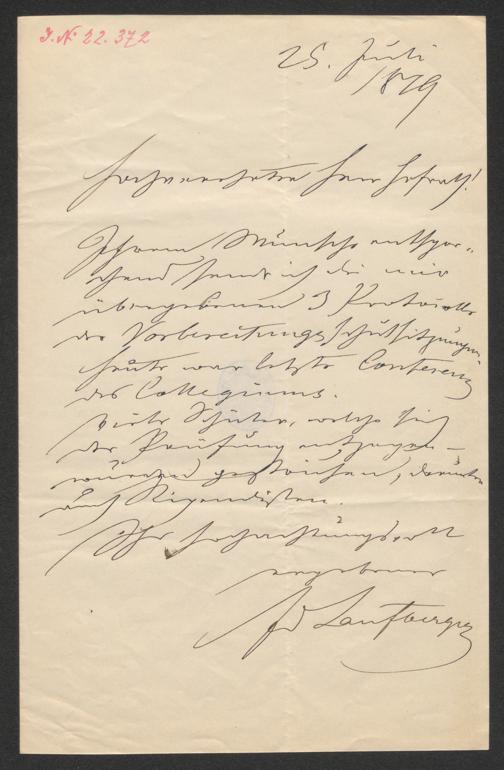 J. N. 22.372
25. Juli
1879
Hochverehrter Herr Hofrath!
Ihrem Wunsche entspre-
chend sende ich die mir
übergebenen 3 Protocolle
der Vorbereitungsschulsitzungen
heute war letzte Conferenz
des Collegiums.
Viele Schüler, welche sich
der Prüfung entzogen –
wurden gestrichen, darunter
auch Stipendisten.
Ihr hochachtungsvoll
ergebener
Fd Laufberger